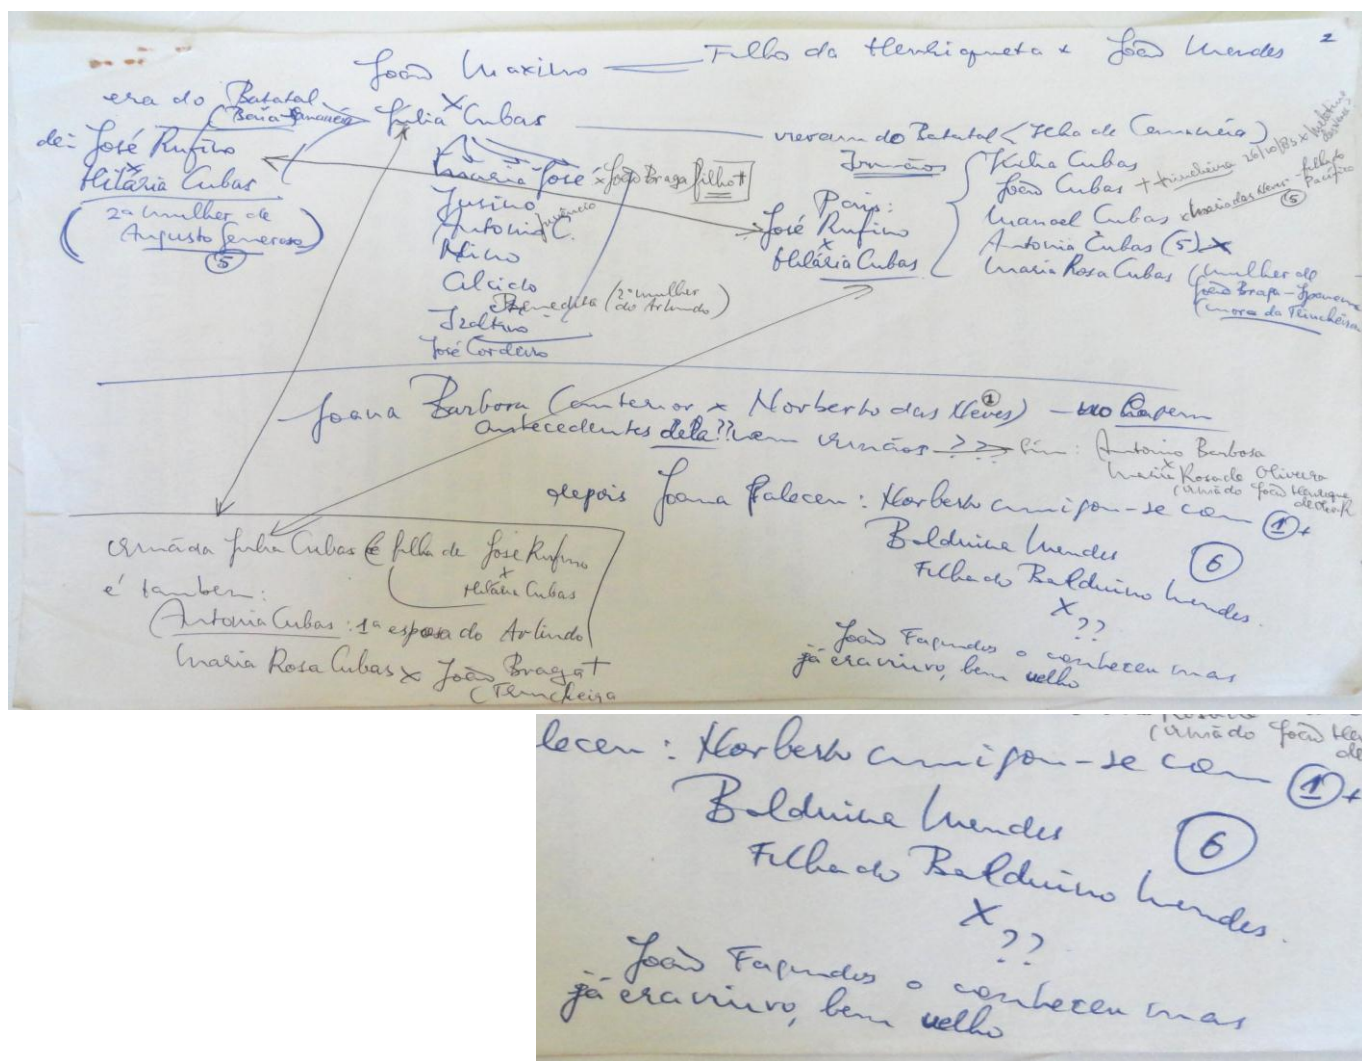 2
João Maximo — Filho da Henriqueta x João Mendes
era do Batatal
x
Julia Cubas — vieram do Batatal (Ilha de Cananéia)
de: José Rufino
x
Hilária Cubas
(2ª mulher de
Augusto Generoso)
5
Maria José x João Braga filho +
Jusino
Antonio C.
Alcido
Benedita (2ª mulher
do Arlindo)
José Cordeiro
Irmãos
Julia Cubas
João Cubas + trincheira 26/10/83 x
Manoel Cubas x Maria das Neves - filha do Pacífico
5
Antonia Cubas (5) x
Maria Rosa Cubas (mulher de
João Braga - Ipanema
(mora da Trincheira
Pais:
José Rufino
x
Hilária Cubas
Joana Barbosa (anterior x Norberto das Neves) 1 — não
antecedentes dela?? nem irmãos ??? → Sim: Antonio Barbosa
x
Maria Rosa de Oliveira
(irmã do João Henrique
depois Joana faleceu: Norberto amigou-se com 1 +
Balduina Mendes
6
Filha do Balduino Mendes.
x
??
João Fagundes o conheceu mas
já era viuvo, bem velho
Irmã da Julia Cubas e filha de José Rufino
x
Hilária Cubas
é também:
Antonia Cubas: 1ª esposa do Arlindo
Maria Rosa Cubas x João Braga +
(Trincheira
leceu: Norberto amigou-se com 1 +
(irmã do João
Balduina Mendes
6
Filha do Balduino Mendes.
x
??
João Fagundes o conheceu mas
já era viuvo, bem velho